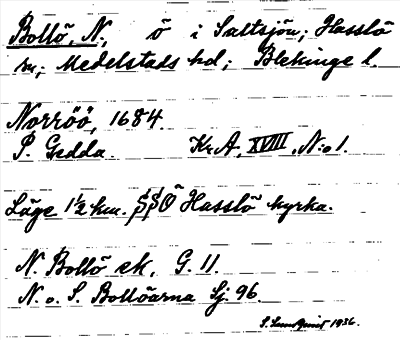 Bollö, N., ö i Saltsjön; Hasslö
sn; Medelstads hd; Blekinge l.
Norröö, 1684.
P. Gedda. Kr.A, XVIII, N:o 1.
Läge 1½ km. SSO Hasslö kyrka.
N. Bollö ek. G. 11.
N. o. S. Bollöarna Sj. 96.
S. Sundquist 1936.